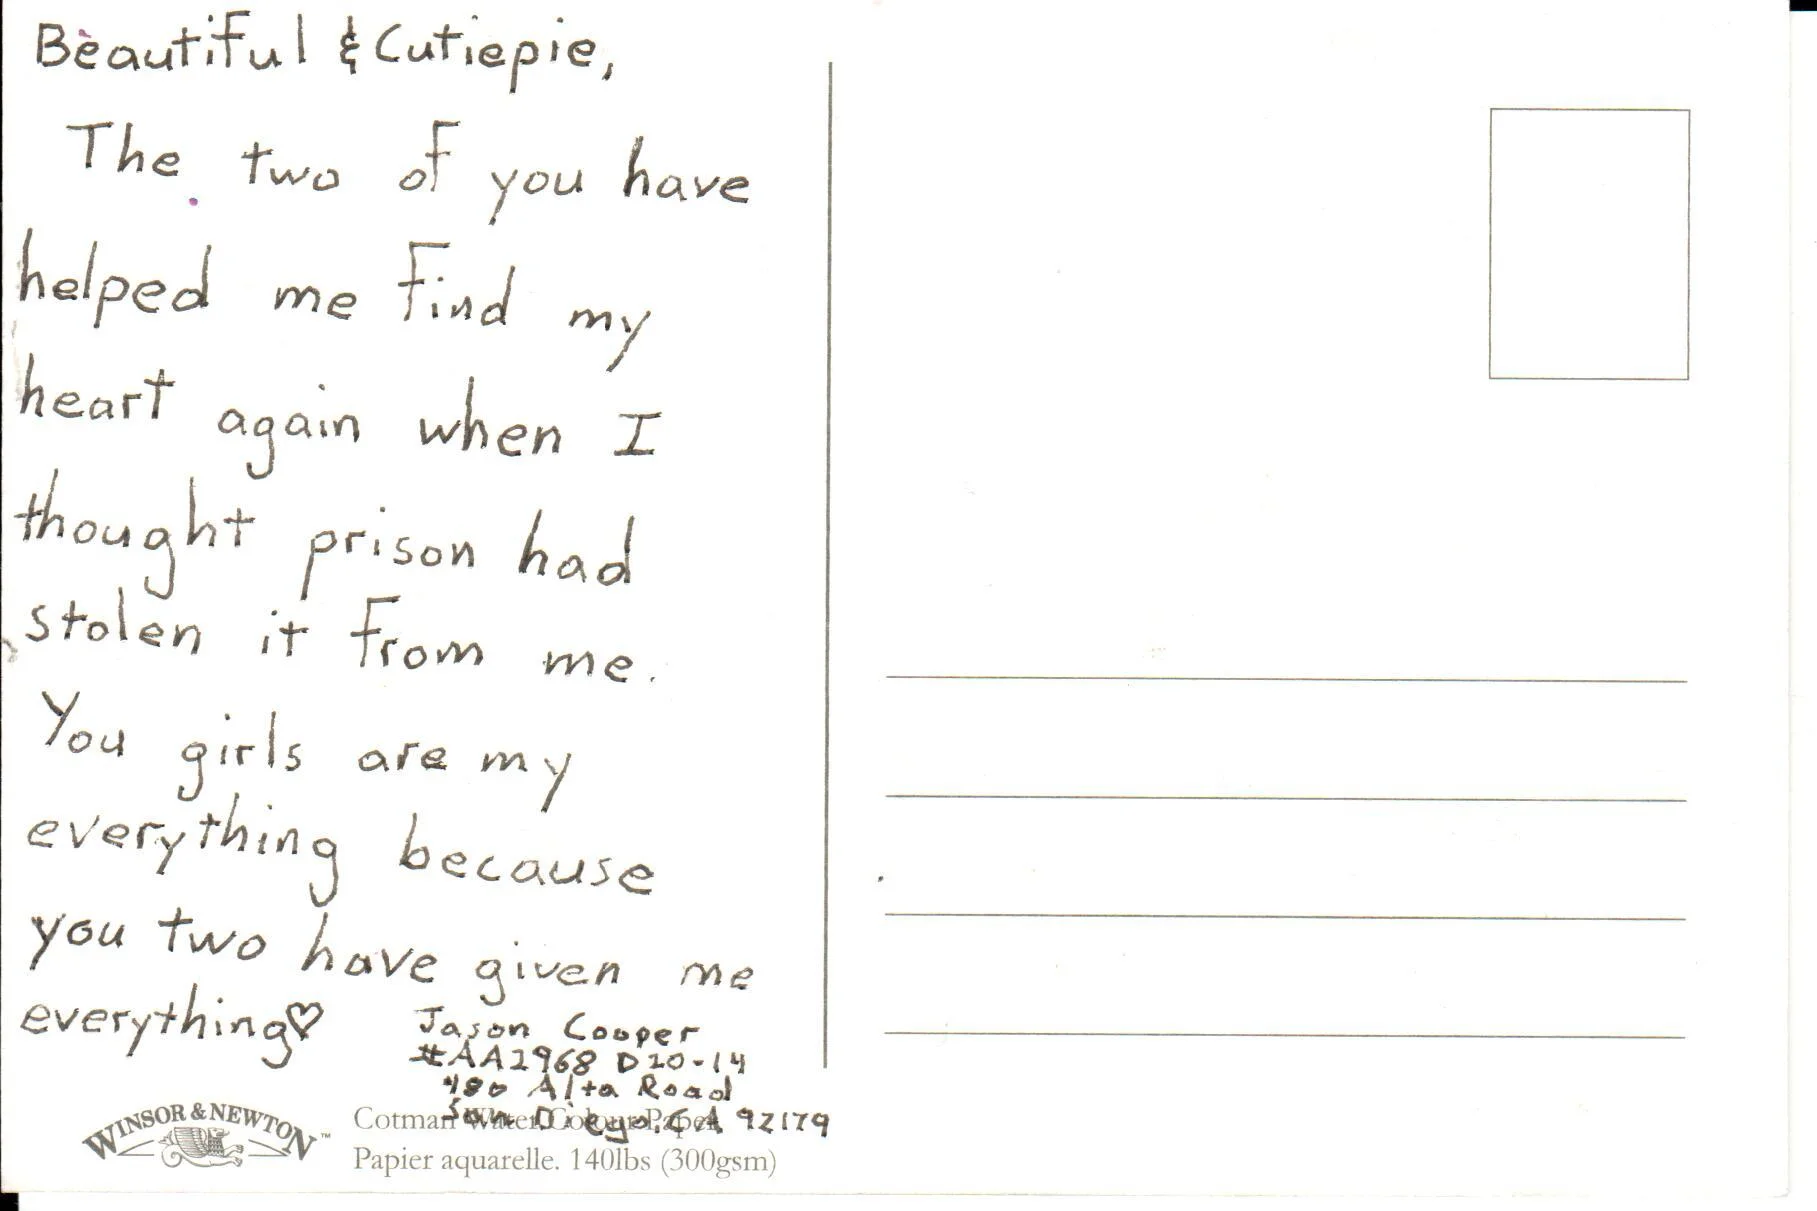 Beautiful & Cutiepie,
The two of you have
helped me find my
heart again when I
thought prison had
stolen it from me.
You girls are my
everything because
you two have given me
everything♡
Jason Cooper
#AA1968 D10-14
480 Alta Road
San Diego, CA 92179
WINSOR & NEWTON™
Cotman Water Colour Paper
Papier aquarelle. 140lbs (300gsm)